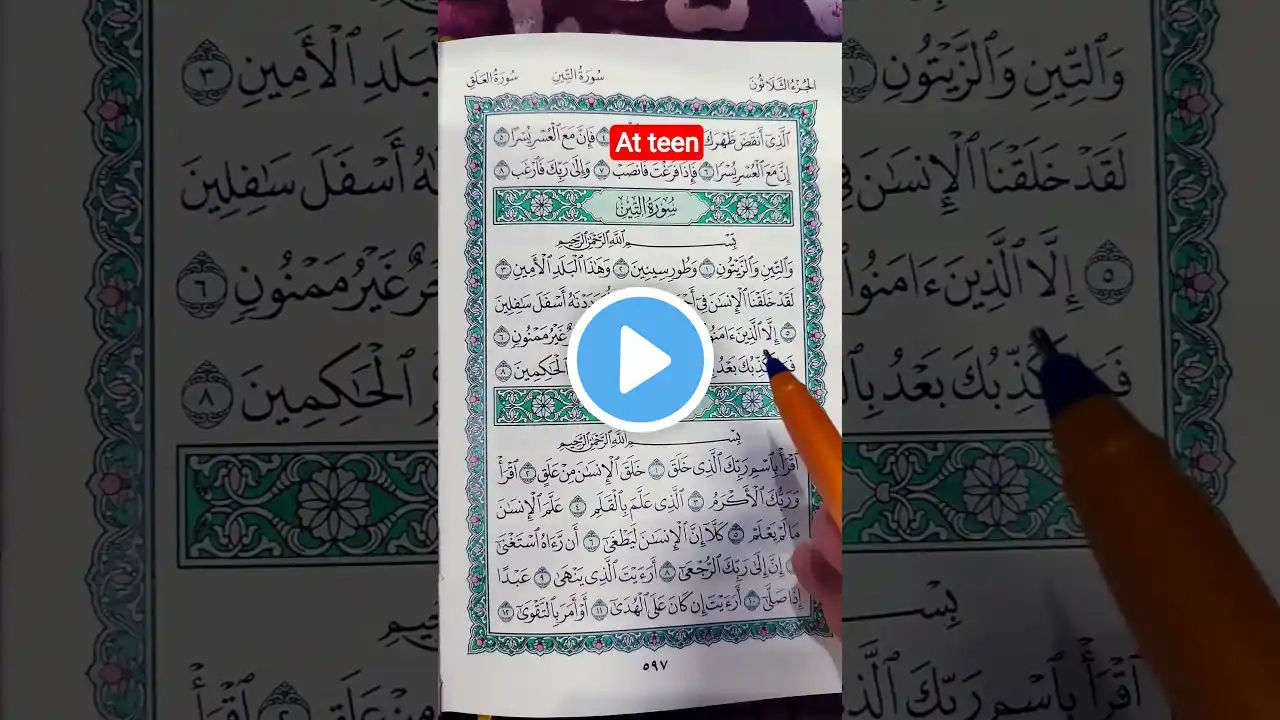 الجُزْءُ الثَّلَاثُونَ سُورَةُ التِّينِ سُورَةُ العَلَقِ
ٱلَّذِىٓ أَنقَضَ ظَهْرَكَ At teen ٤ فَإِنَّ مَعَ ٱلْعُسْرِ يُسْرًا ٥
إِنَّ مَعَ ٱلْعُسْرِ يُسْرًا ٦ فَإِذَا فَرَغْتَ فَٱنصَبْ ٧ وَإِلَىٰ رَبِّكَ فَٱرْغَب ٨
سُورَةُ التِّينِ
بِسْمِ ٱللَّهِ ٱلرَّحْمَٰنِ ٱلرَّحِيمِ
وَٱلتِّينِ وَٱلزَّيْتُونِ ١ وَطُورِ سِينِينَ ٢ وَهَٰذَا ٱلْبَلَدِ ٱلْأَمِينِ ٣
لَقَدْ خَلَقْنَا ٱلْإِنسَٰنَ فِىٓ رَدَدْنَٰهُ أَسْفَلَ سَٰفِلِينَ
٥ إِلَّا ٱلَّذِينَ ءَامَنُوا۟ غَيْرُ مَمْنُونٍ ٦
بَعْدُ ٱلْحَٰكِمِينَ ٨
بِسْمِ ٱللَّهِ ٱلرَّحْمَٰنِ ٱلرَّحِيمِ
ٱقْرَأْ بِٱسْمِ رَبِّكَ ٱلَّذِى خَلَقَ ١ خَلَقَ ٱلْإِنسَٰنَ مِنْ عَلَقٍ ٢ ٱقْرَأْ
وَرَبُّكَ ٱلْأَكْرَمُ ٣ ٱلَّذِى عَلَّمَ بِٱلْقَلَمِ ٤ عَلَّمَ ٱلْإِنسَٰنَ
مَا لَمْ يَعْلَمْ ٥ كَلَّآ إِنَّ ٱلْإِنسَٰنَ لَيَطْغَىٰٓ ٦ أَن رَّءَاهُ ٱسْتَغْنَىٰٓ
إِنَّ إِلَىٰ رَبِّكَ ٱلرُّجْعَىٰٓ ٨ أَرَءَيْتَ ٱلَّذِى يَنْهَىٰ ٩ عَبْدًا
إِذَا صَلَّىٰٓ ١٠ أَرَءَيْتَ إِن كَانَ عَلَى ٱلْهُدَىٰٓ ١١ أَوْ أَمَرَ بِٱلتَّقْوَىٰٓ ١٢
٥٩٧